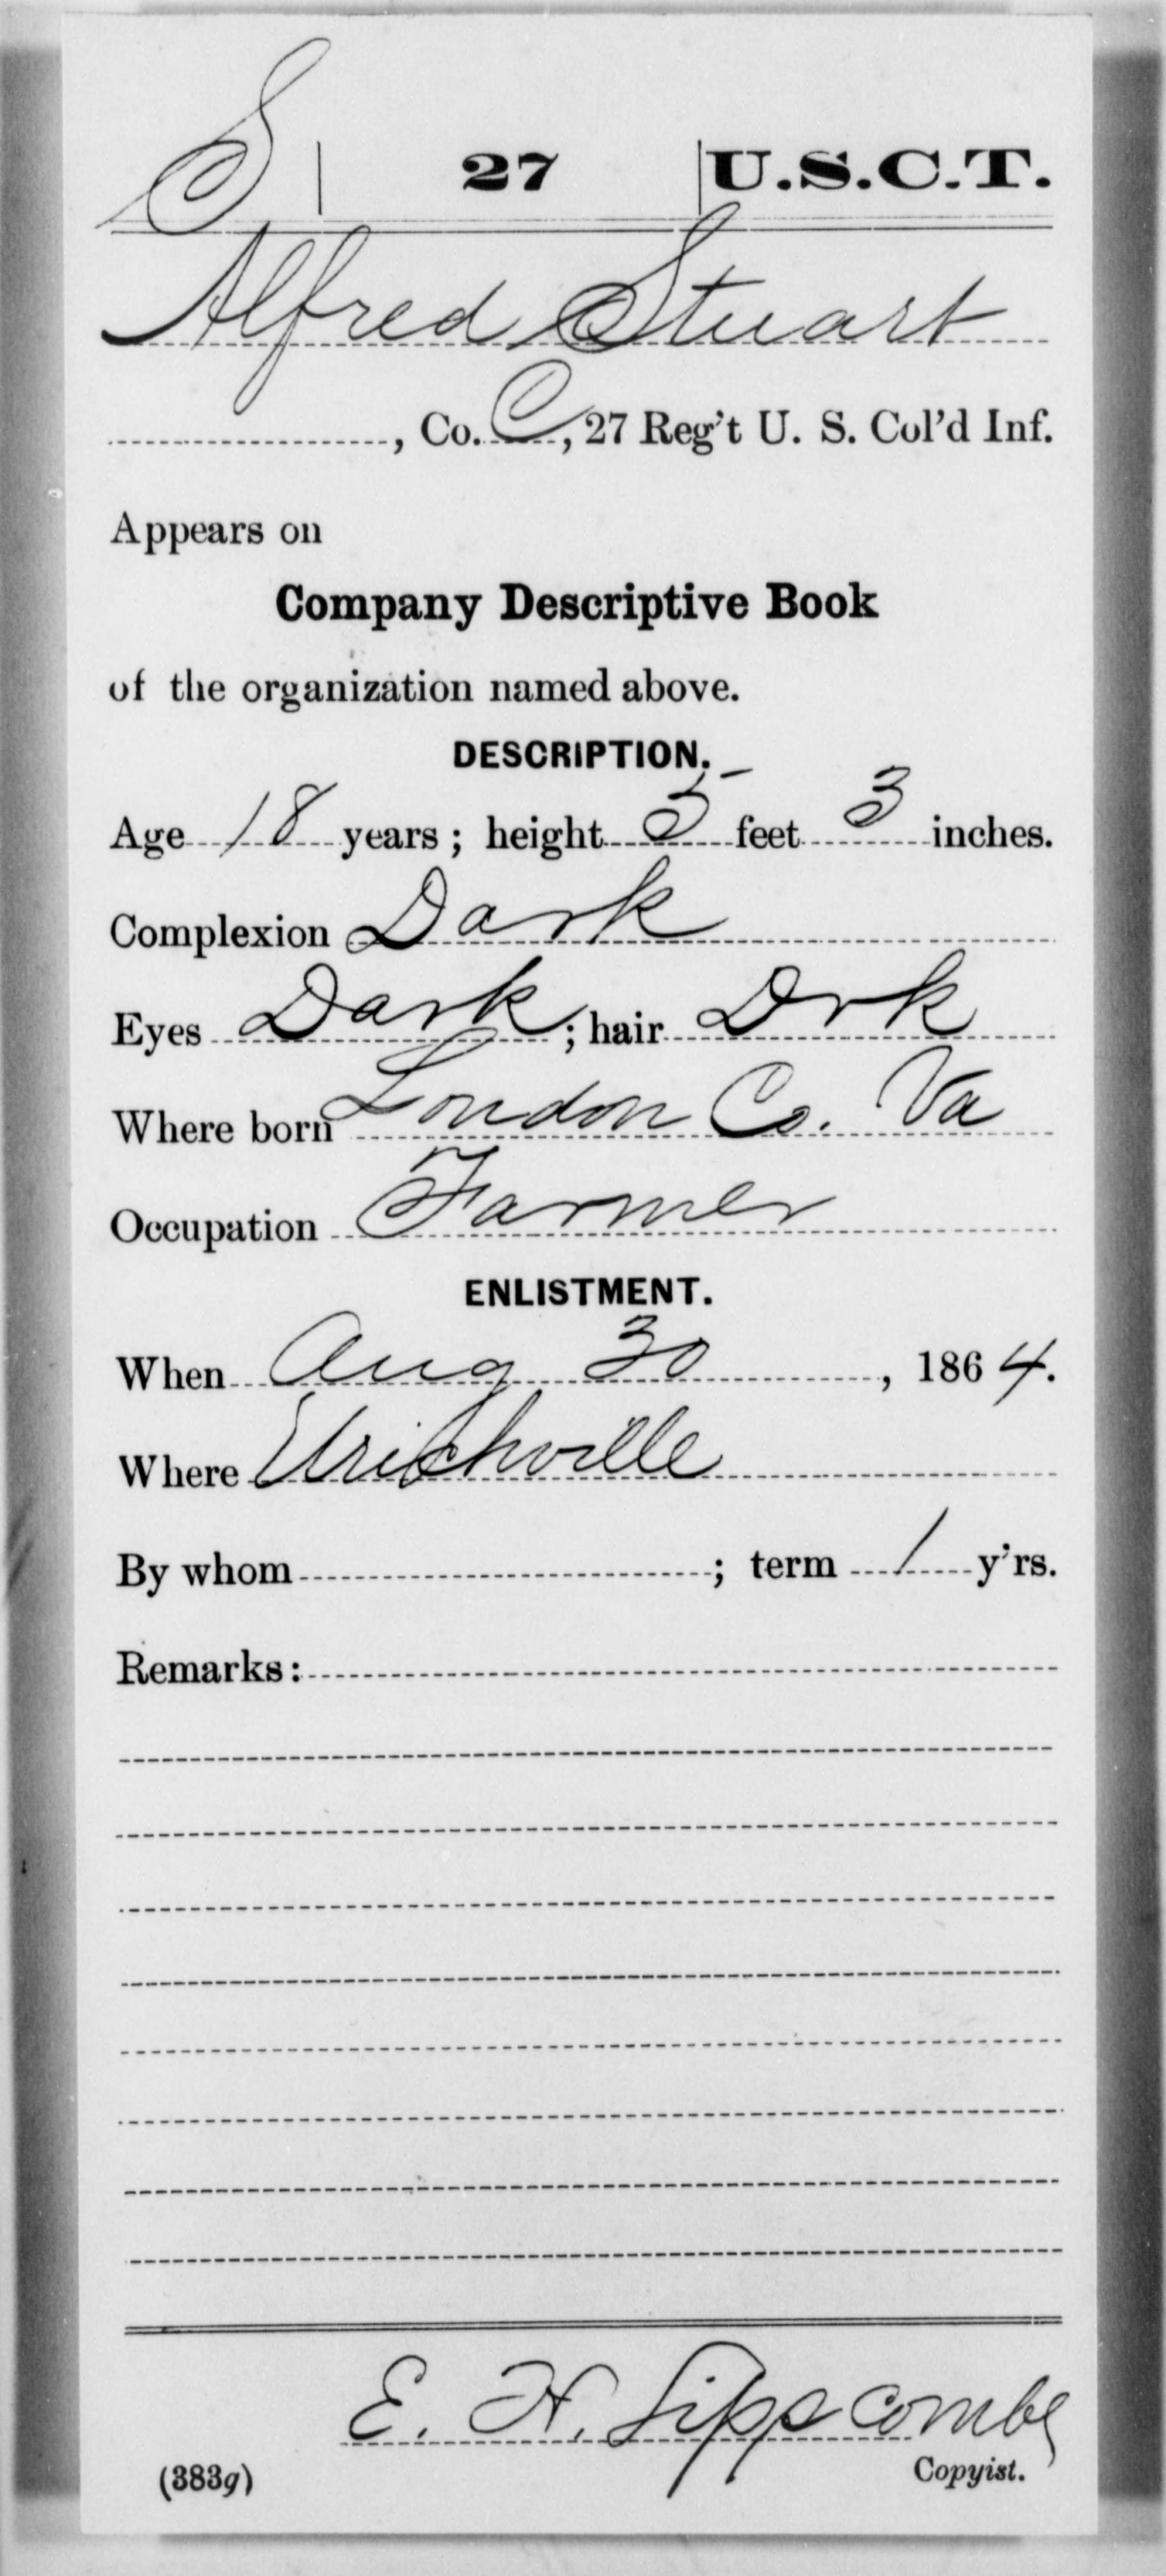 S | 27 | U.S.C.T.
Alfred Stuart
, Co. C, 27 Reg't U. S. Col'd Inf.
Appears on
Company Descriptive Book
of the organization named above.
DESCRIPTION.
Age 18 years; height 5 feet 3 inches.
Complexion Dark
Eyes Dark; hair Drk
Where born London Co. Va
Occupation Farmer
ENLISTMENT.
When Aug 30, 1864.
Where Urichville
By whom ; term 1 y'rs.
Remarks:
E. H. Lippscombe
(383g) Copyist.